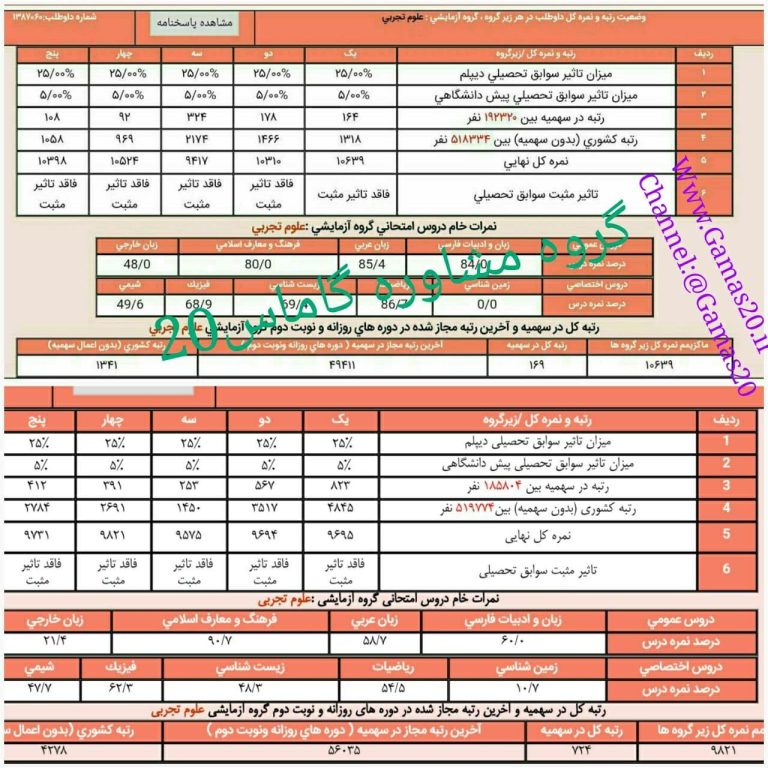 وضعیت رتبه و نمره کل داوطلب در هر زیر گروه ، گروه آزمایشي : علوم تجربي مشاهده پاسخنامه شماره داوطلب:۱۳۸۷۰۶۰
ردیف رتبه و نمره کل /زیرگروه یک دو سه چهار پنج
۱ میزان تاثیر سوابق تحصیلي دیپلم ۲۵/۰۰% ۲۵/۰۰% ۲۵/۰۰% ۲۵/۰۰% ۲۵/۰۰%
۲ میزان تاثیر سوابق تحصیلي پیش دانشگاهي ۵/۰۰% ۵/۰۰% ۵/۰۰% ۵/۰۰% ۵/۰۰%
۳ رتبه در سهمیه بین ۱۹۲۳۲۰ نفر ۱۶۴ ۱۷۸ ۳۲۴ ۹۲ ۱۰۸
۴ رتبه کشوري (بدون سهمیه) بین ۵۱۸۳۳۴ نفر ۱۳۱۸ ۱۴۶۶ ۲۱۷۴ ۹۶۹ ۱۰۵۸
۵ نمره کل نهایي ۱۰۶۳۹ ۱۰۳۱۰ ۹۴۱۷ ۱۰۵۲۴ ۱۰۳۹۸
۶ تاثیر مثبت سوابق تحصیلي فاقد تاثیر مثبت فاقد تاثیر مثبت فاقد تاثیر مثبت فاقد تاثیر مثبت فاقد تاثیر مثبت
نمرات خام دروس امتحاني گروه آزمایشي :علوم تجربي
عمومي زبان و ادبیات فارسي زبان عربي فرهنگ و معارف اسلامي زبان خارجي
درصد نمره درس 84/0 85/4 80/0 48/0
دروس اختصاصي زمین شناسي ریاضیات زیست شناسي فیزیک شیمي
درصد نمره درس 0/0 86/7 69/4 68/9 49/6
رتبه کل در سهمیه و آخرین رتبه مجاز شده در دوره هاي روزانه و نوبت دوم گروه آزمایشي علوم تجربي
ماکزیمم نمره کل زیر گروه ها رتبه کل در سهمیه آخرین رتبه مجاز در سهمیه ( دوره هاي روزانه ونوبت دوم ) رتبه کشوري (بدون اعمال سهمیه)
۱۰۶۳۹ ۱۶۹ ۴۹۴۱۱ ۱۳۴۱
گروه مشاوره گاماس20
Www.Gamas20.ir
Channel:@Gamas20
ردیف رتبه و نمره کل /زیرگروه یک دو سه چهار پنج
1 میزان تاثیر سوابق تحصیلی دیپلم ۲۵٪ ۲۵٪ ۲۵٪ ۲۵٪ ۲۵٪
2 میزان تاثیر سوابق تحصیلی پیش دانشگاهی ۵٪ ۵٪ ۵٪ ۵٪ ۵٪
3 رتبه در سهمیه بین ۱۸۵۸۰۴ نفر ۸۲۳ ۵۶۷ ۲۵۳ ۳۹۱ ۴۱۲
4 رتبه کشوری (بدون سهمیه) بین۵۱۹۷۷۴ نفر ۴۸۴۵ ۳۵۱۷ ۱۴۵۰ ۲۶۹۱ ۲۷۸۴
5 نمره کل نهایی ۹۶۹۵ ۹۶۹۴ ۹۵۷۵ ۹۸۲۱ ۹۷۳۱
6 تاثیر مثبت سوابق تحصیلی فاقد تاثیر مثبت فاقد تاثیر مثبت فاقد تاثیر مثبت فاقد تاثیر مثبت فاقد تاثیر مثبت
نمرات خام دروس امتحانی گروه ازمایشی : علوم تجربی
دروس عمومي زبان و ادبیات فارسي زبان عربي فرهنگ و معارف اسلامي زبان خارجي
درصد نمره درس ۶۰/۰ ۵۸/۷ ۹۰/۷ ۲۱/۴
دروس اختصاصي زمین شناسي ریاضیات زیست شناسي فیزیک شیمي
درصد نمره درس ۱۰/۷ ۵۴/۵ ۴۸/۳ ۶۲/۳ ۴۷/۷
رتبه کل در سهمیه و آخرین رتبه مجاز شده در دوره های روزانه و نوبت دوم گروه آزمایشی علوم تجربی
نمره کل زیر گروه ها رتبه کل در سهمیه آخرین رتبه مجاز در سهمیه ( دوره هاي روزانه ونوبت دوم ) رتبه کشوري (بدون اعمال
۹۸۲۱ ۷۲۴ ۵۶۰۳۵ ۴۲۷۸